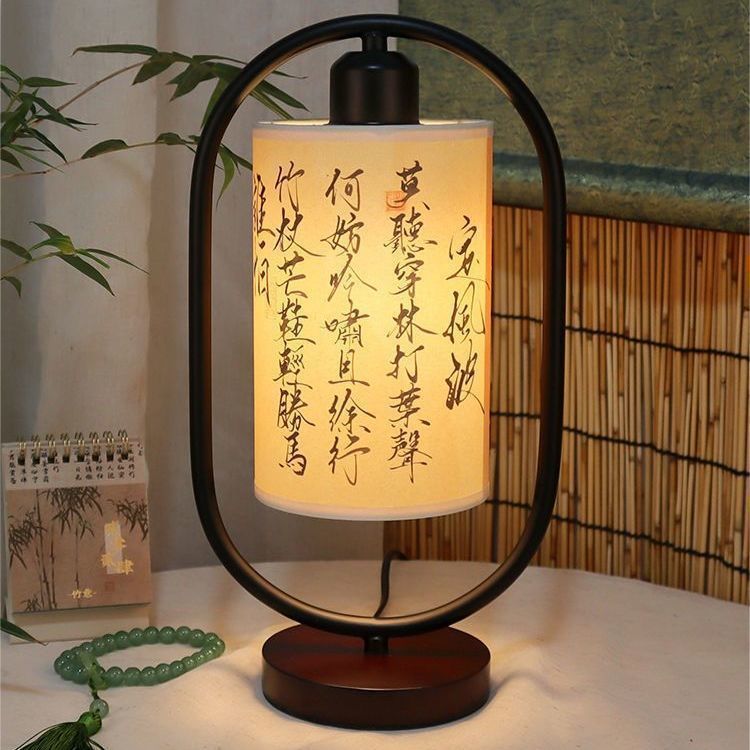 定風波
莫聽穿林打葉聲
何妨吟嘯且徐行
竹杖芒鞋輕勝馬
誰
竹意